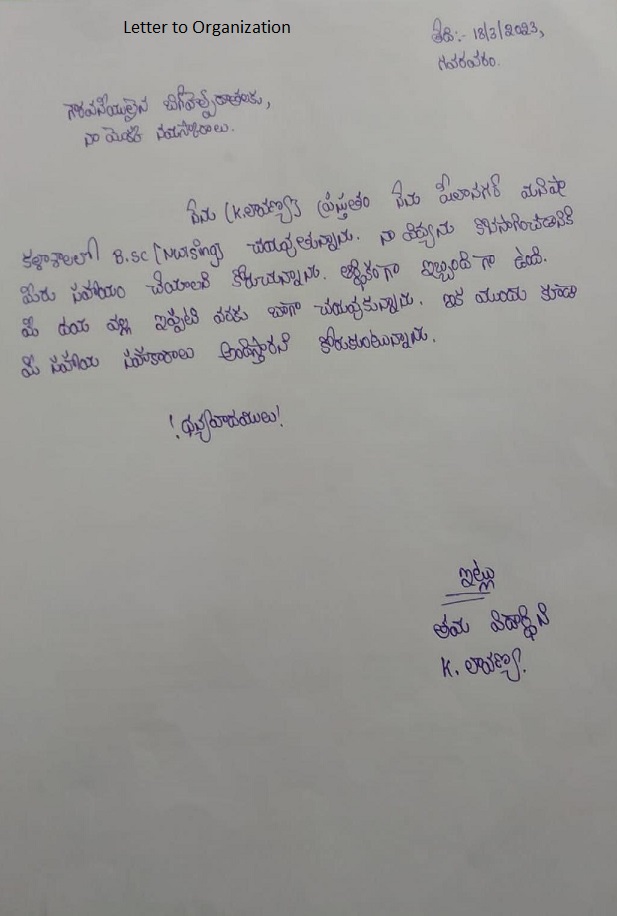 Letter to Organization
తేది:- 18/3/2023,
గవరవరం.
గౌరవనీయులైన
నా యొక్క నమస్కారాలు.
నేను (K.లావణ్య) ప్రస్తుతం నేను మనిషా
కళాశాలలో B.Sc చదువుతున్నాను. నా విద్యను కొనసాగించడానికి
మీరు సహాయం చేయాలని కోరుచున్నాను. ఆర్థికంగా ఇబ్బంది గా ఉంది.
మీ దయ వల్ల ఇప్పటి వరకు బాగా చదువుకున్నాను. ఇక ముందు కూడా
మీ సహాయ సహకారాలు అందిస్తారని కోరుకుంటున్నాను.
!ధన్యవాదములు!
ఇట్లు
తమ విద్యార్థిని
K. లావణ్య.